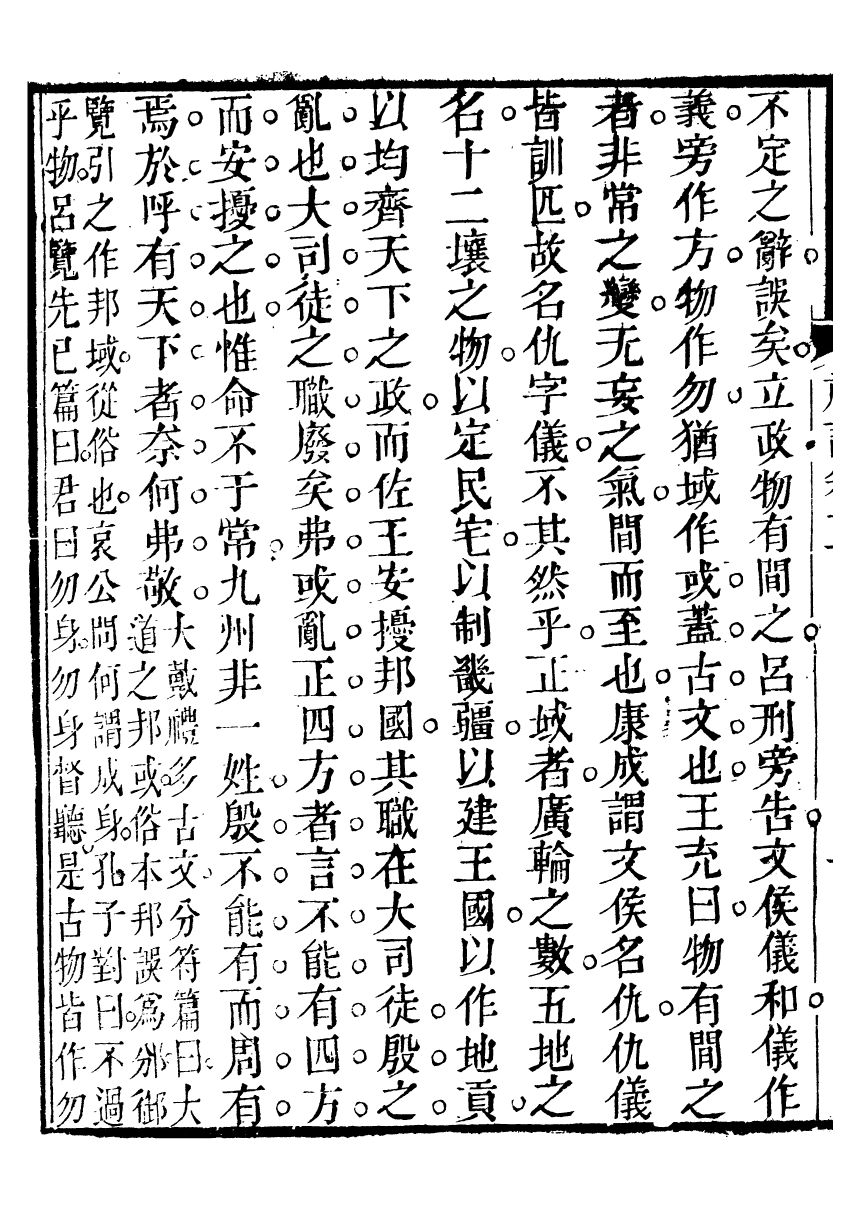 不定之辭誤矣立政物有間之呂刑旁告文侯儀和儀作
義旁作方物作勿猶域作或蓋古文也王充曰物有間之
者非常之變无妄之氣間而至也康成謂文侯名仇仇儀
皆訓匹故名仇字儀不其然乎正域者廣輪之數五地之
名十二壤之物以定民宅以制畿疆以建王國以作地貢
以均齊天下之政而佐王安擾邦國其職在大司徒殷之
亂也大司徒之職廢矣弗或亂正四方者言不能有四方
而安擾之也惟命不于常九州非一姓殷不能有而周有
焉於呼有天下者奈何弗敬
大戴禮多古文分符篇曰大
道之邦或俗本邦誤為𨚍御
覽引之作邦域從俗也哀公問何謂成身孔子對曰不過
乎物呂覽先已篇曰君曰勿身勿身督聽是古物皆作勿